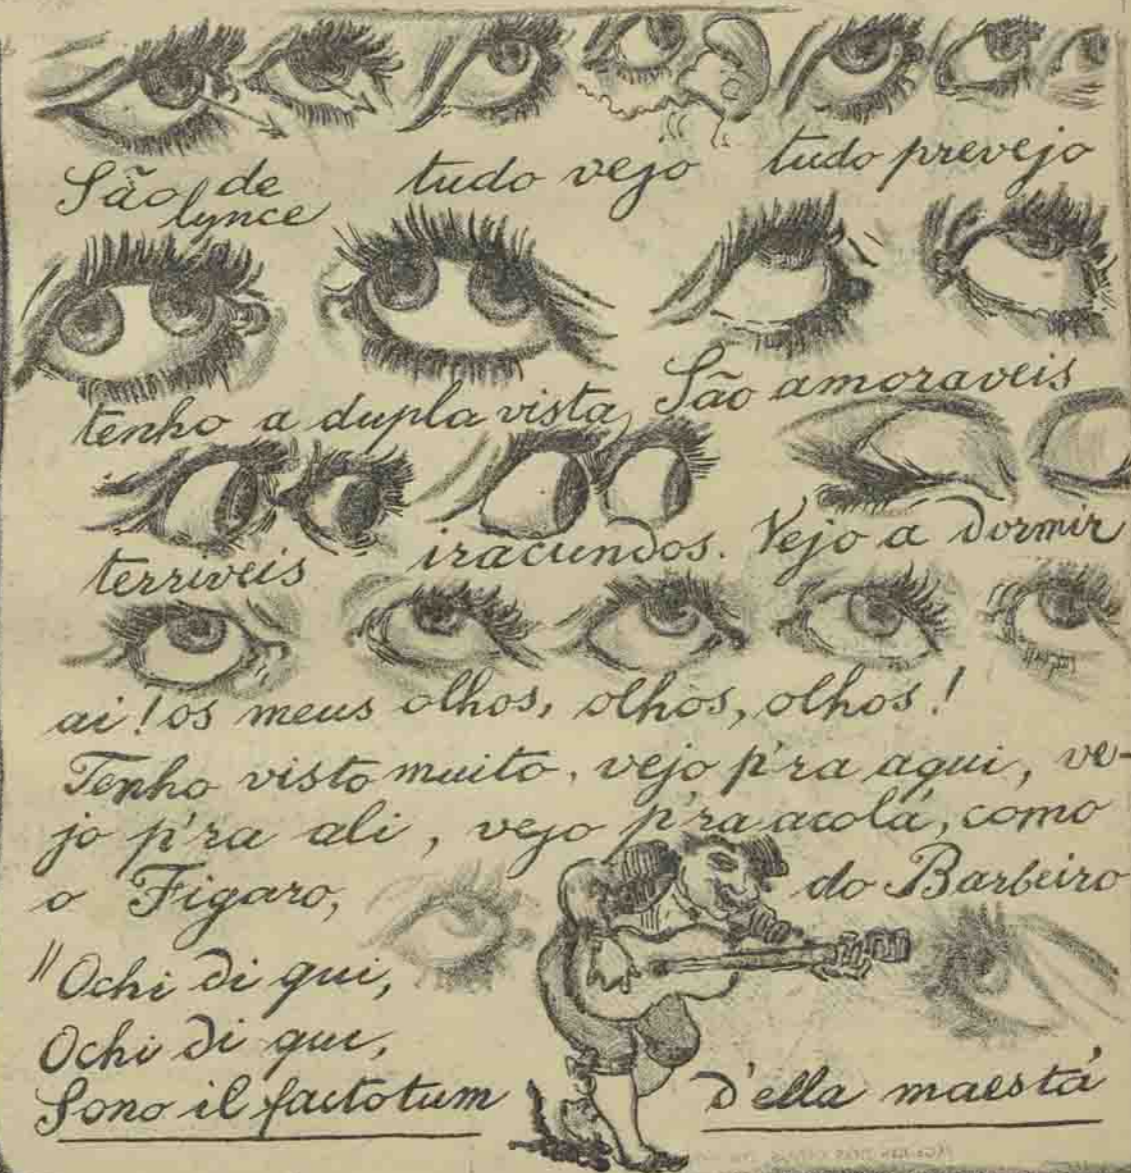 São de lynce tudo vejo tudo prevejo
tenho a dupla vista, São amoraveis
terriveis iracundos. Vejo a dormir
ai! os meus olhos, olhos, olhos!
Tenho visto muito, vejo p'ra aqui, ve-
jo p'ra ali, vejo p'ra acolá, como
o Figaro, do Barbeiro
"Ochi di qui,
Ochi di qui,
Sono il factotum d'ella maestá